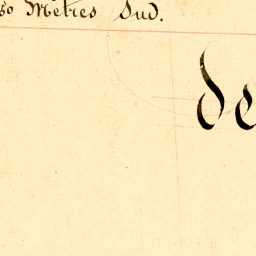 50 Metres Sud.
de